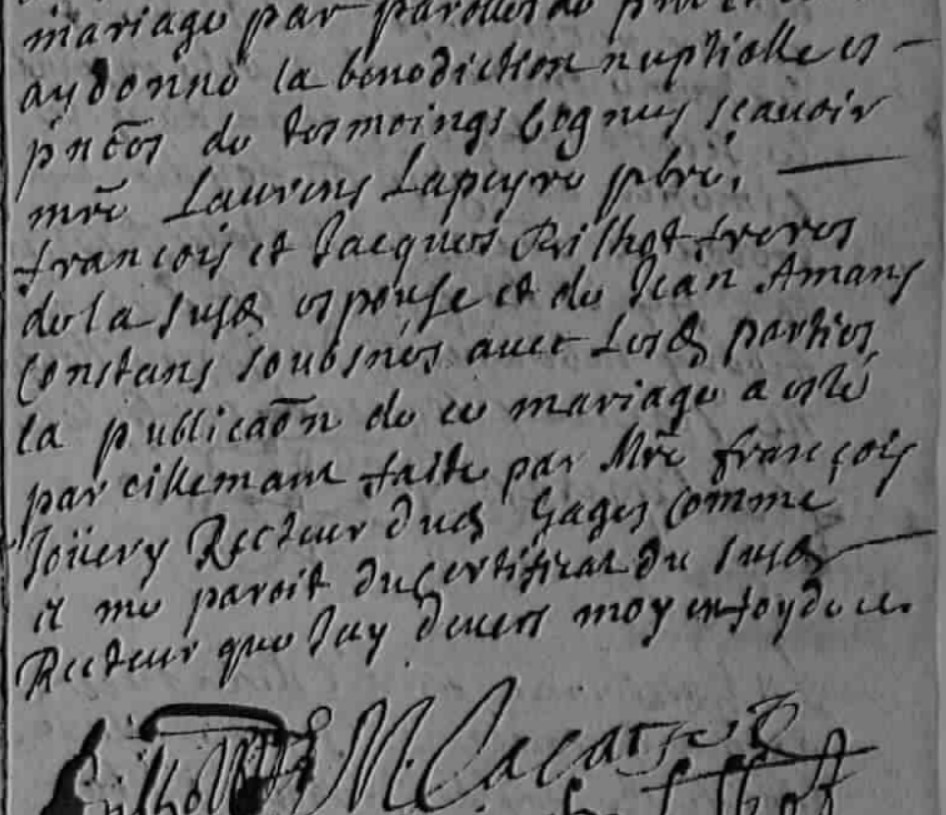 mariage par parolles de
ay donné la benediction nuptialle es
pn̄ces de tesmoings cognus sçauoir
mr̄e Laurens Lapeyre pbre,
francois et Jacques Rilhot freres
de la susd espouse et de Jean Amans
Constans soubsnés auec Lesd parties
la publicaōn de ce mariage a esté
pareillemant faite par Mr̄e françois
Joüery Recteur dud Gages Comme
il me paroit du certificat du susd
Recteur que Jay deuers moy en foy de ce.
M. Lacarriere
Rilhot